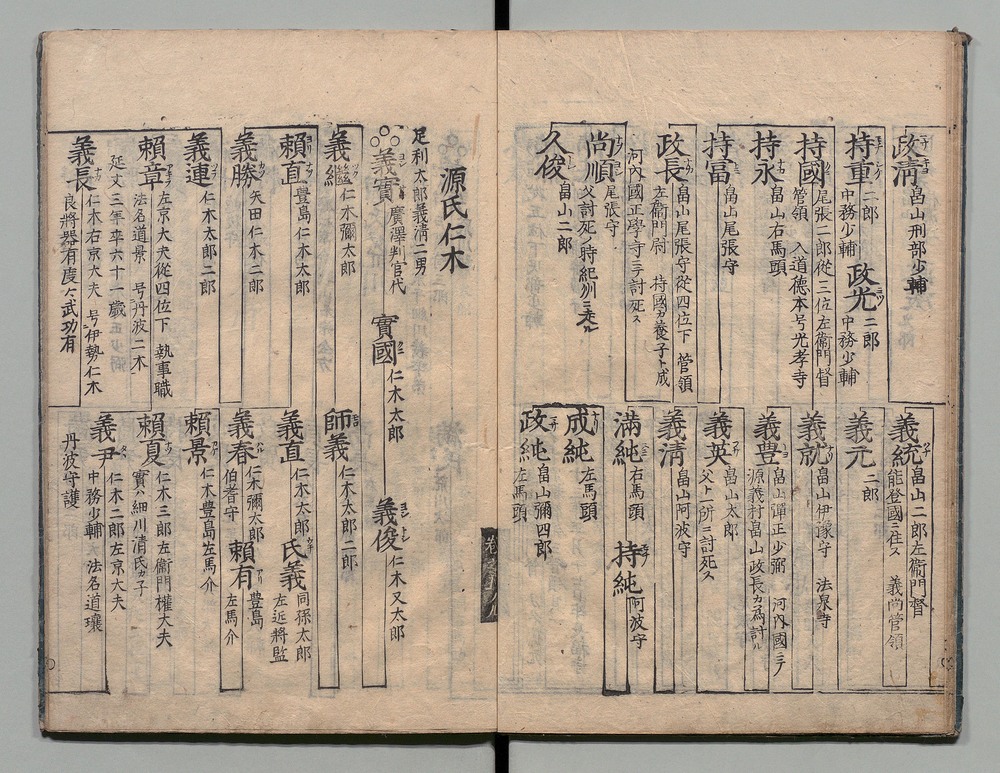 政清 畠山刑部少輔
持重 二郎 中務少輔
政光 二郎 中務少輔
持國 尾張二郎從三位左衞門督
管領 入道德本号光孝寺
持永 畠山右馬頭
持富 畠山尾張守
政長 畠山尾張守從四位下 管領
左衞門尉 持國カ養子ト成
河内國正學寺ニテ討死ス
尚順 尾張守
父討死ノ時紀州ニ
久俊 畠山二郎
義統 畠山二郎左衞門督
能登國ニ住ス 義尚管領
義元 二郎
義就 畠山伊豫守 法泉寺
義豊 畠山彈正少弼 河内國ニテ
源義村畠山政長カ為討ル
義英 畠山太郎
父ト一所ニ討死ス
義淸 畠山阿波守
滿純 右馬頭
持純 阿波守
成純 左馬頭
政純 畠山彌四郎
左馬頭
源氏仁木
足利太郎義淸二男
義實 廣澤判官代
實國 仁木太郎
義俊 仁木又太郎
義繼 仁木彌太郎
賴直 豊島仁木太郎
義勝 矢田仁木二郎
義連 仁木太郎二郎
賴章 左京大夫從四位下 執事職
法名道景 号丹波二木
延文三年卒六十一歲
義長 仁木右京大夫 号伊勢仁木
良將器有度々武功有
師義 仁木太郎二郎
義直 仁木太郎
氏義 同孫太郎
左近將監
義春 仁木彌太郎
伯耆守
賴有 豊島
左馬介
賴景 仁木豊島左馬介
賴夏 仁木三郎左衞門權大夫
實ハ細川淸氏カ子
義尹 仁木二郎左京大夫
中務少輔 法名道瓖
丹波守護